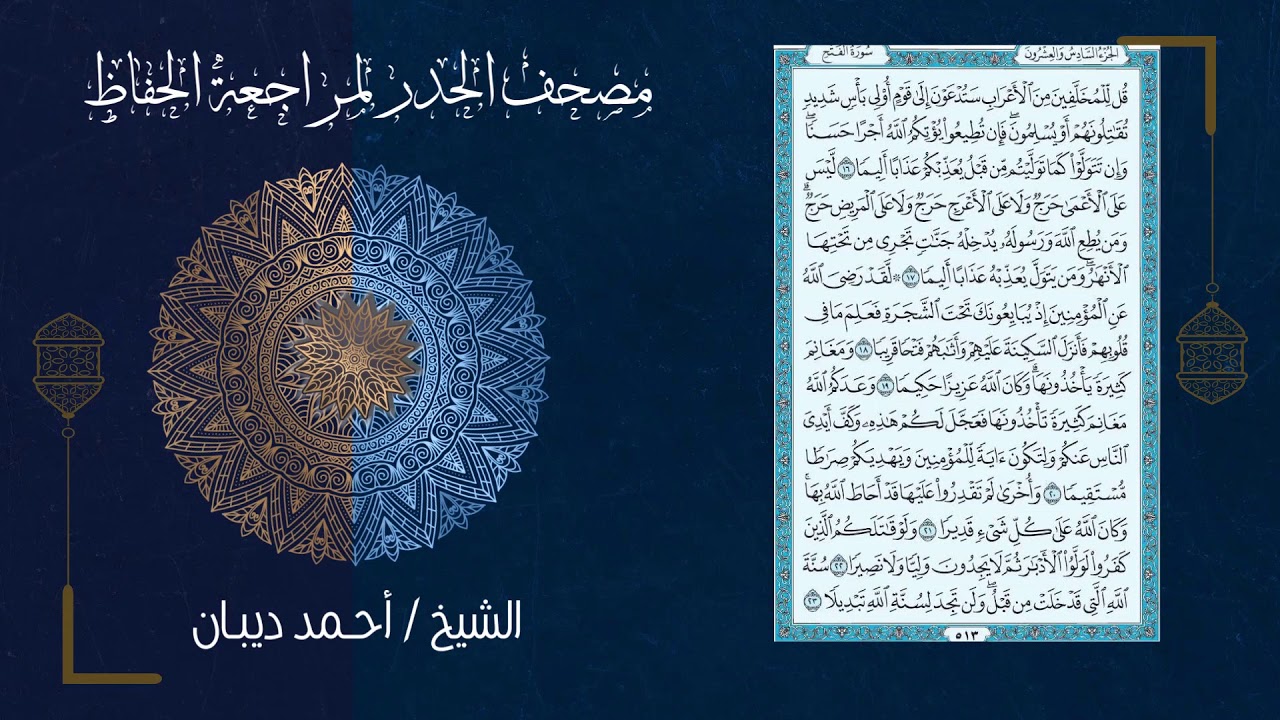 مصحف الحدر لمراجعة الحفاظ
الشيخ / أحمد ديبان
الجزء السادس والعشرون
سورة الفتح
قُل لِّلْمُخَلَّفِينَ مِنَ الْأَعْرَابِ سَتُدْعَوْنَ إِلَىٰ قَوْمٍ أُو۟لِى بَأْسٍ شَدِيدٍ
تُقَٰتِلُونَهُمْ أَوْ يُسْلِمُونَ ۖ فَإِن تُطِيعُوا۟ يُؤْتِكُمُ اللَّهُ أَجْرًا حَسَنًا ۖ
وَإِن تَتَوَلَّوْا۟ كَمَا تَوَلَّيْتُم مِّن قَبْلُ يُعَذِّبْكُمْ عَذَابًا أَلِيمًا ١٦ لَّيْسَ
عَلَى الْأَعْمَىٰ حَرَجٌ وَلَا عَلَى الْأَعْرَجِ حَرَجٌ وَلَا عَلَى الْمَرِيضِ حَرَجٌ ۗ
وَمَن يُطِعِ اللَّهَ وَرَسُولَهُۥ يُدْخِلْهُ جَنَّٰتٍ تَجْرِى مِن تَحْتِهَا
الْأَنْهَٰرُ ۖ وَمَن يَتَوَلَّ يُعَذِّبْهُ عَذَابًا أَلِيمًا ١٧ ۞ لَّقَدْ رَضِىَ اللَّهُ
عَنِ الْمُؤْمِنِينَ إِذْ يُبَايِعُونَكَ تَحْتَ الشَّجَرَةِ فَعَلِمَ مَا فِى
قُلُوبِهِمْ فَأَنزَلَ السَّكِينَةَ عَلَيْهِمْ وَأَثَٰبَهُمْ فَتْحًا قَرِيبًا ١٨ وَمَغَانِمَ
كَثِيرَةً يَأْخُذُونَهَا ۗ وَكَانَ اللَّهُ عَزِيزًا حَكِيمًا ١٩ وَعَدَكُمُ اللَّهُ
مَغَانِمَ كَثِيرَةً تَأْخُذُونَهَا فَعَجَّلَ لَكُمْ هَٰذِهِۦ وَكَفَّ أَيْدِىَ
النَّاسِ عَنكُمْ وَلِتَكُونَ ءَايَةً لِّلْمُؤْمِنِينَ وَيَهْدِيَكُمْ صِرَٰطًا
مُّسْتَقِيمًا ٢٠ وَأُخْرَىٰ لَمْ تَقْدِرُوا۟ عَلَيْهَا قَدْ أَحَاطَ اللَّهُ بِهَا ۚ
وَكَانَ اللَّهُ عَلَىٰ كُلِّ شَىْءٍ قَدِيرًا ٢١ وَلَوْ قَٰتَلَكُمُ الَّذِينَ
كَفَرُوا۟ لَوَلَّوُا۟ الْأَدْبَٰرَ ثُمَّ لَا يَجِدُونَ وَلِيًّا وَلَا نَصِيرًا ٢٢ سُنَّةَ
اللَّهِ الَّتِى قَدْ خَلَتْ مِن قَبْلُ ۖ وَلَن تَجِدَ لِسُنَّةِ اللَّهِ تَبْدِيلًا ٢٣
٥١٣